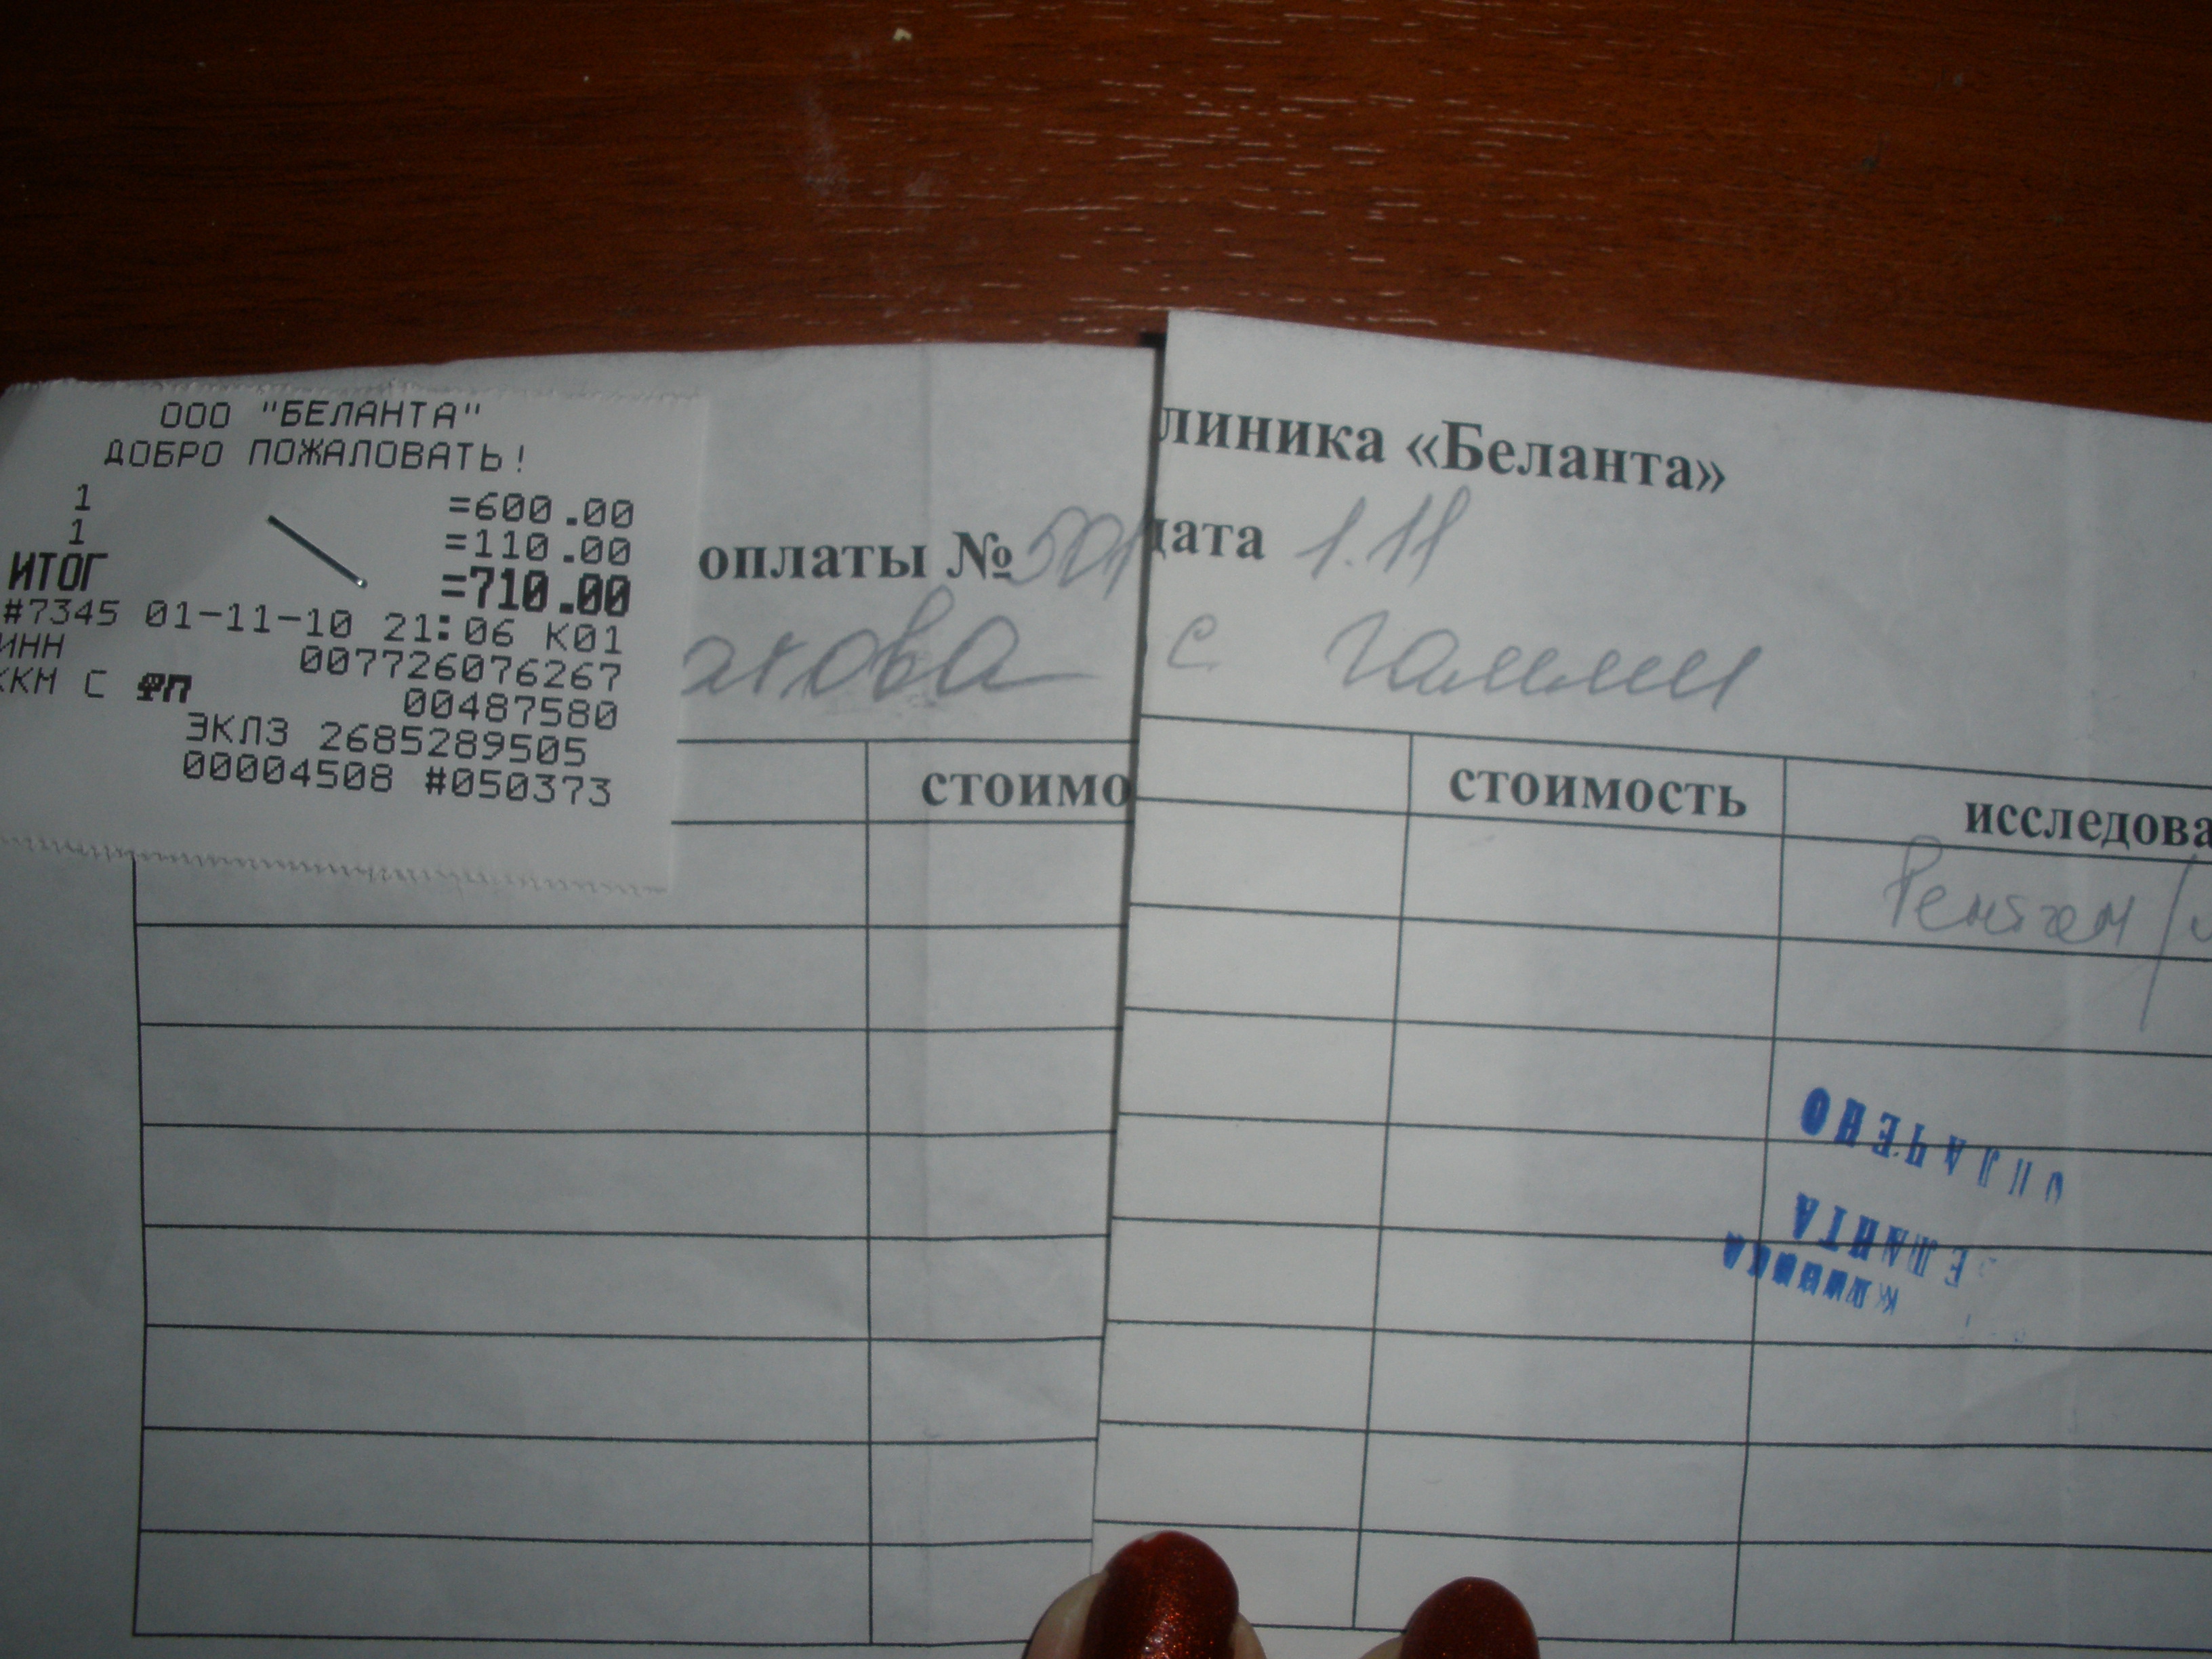 ООО "БЕЛАНТА"
ДОБРО ПОЖАЛОВАТЬ!
1 =600.00
1 =110.00
ИТОГ =710.00
#7345 01-11-10 21:06 К01
ИНН 007726076267
ККМ С ФП 00487580
ЭКЛЗ 2685289505
00004508 #050373
оплаты № 501
ахова
стоимо
линика «Беланта»
дата 1.11
с
стоимость исследова
Рентген
ОПЛАЧЕНО
ЕЛАНТА
КЛИНИКА